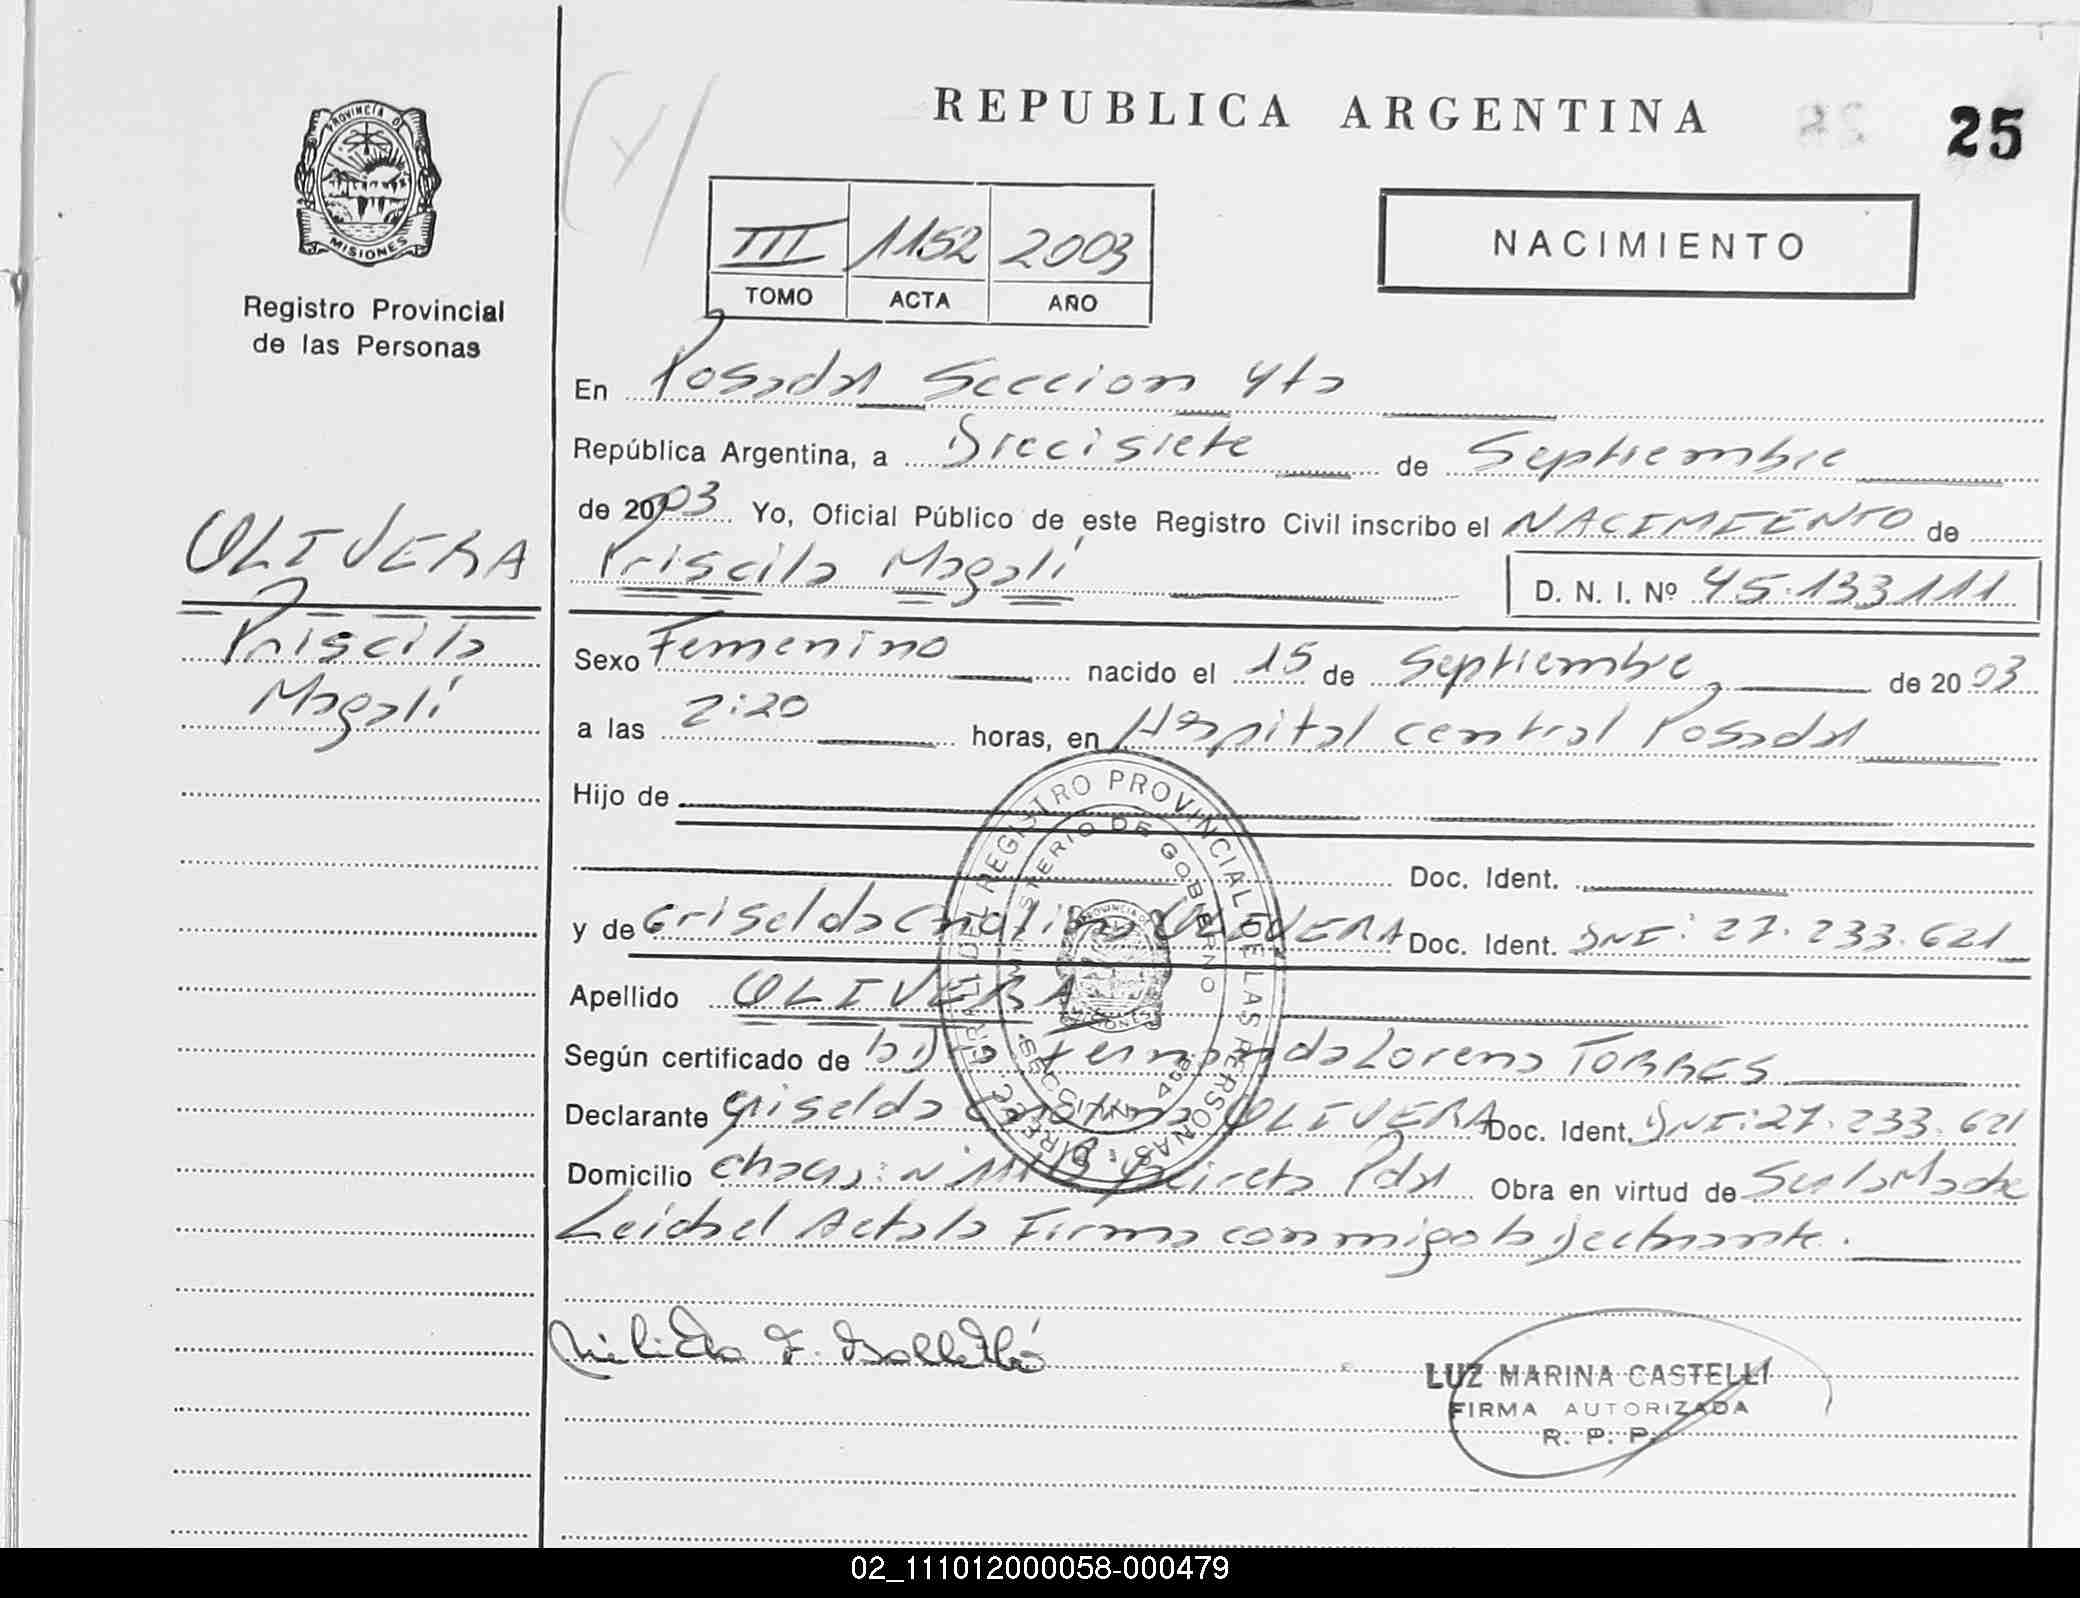 REPUBLICA ARGENTINA
25
PROVINCIA DE
MISIONES
Registro Provincial
de las Personas
III 1152 2003
TOMO ACTA AÑO
NACIMIENTO
En Posadas Seccion 4ta
República Argentina, a Diecisiete de Septiembre
de 2003 Yo, Oficial Público de este Registro Civil inscribo el NACIMIENTO de
Priscila Magalí D. N. I. Nº 45.133.111
OLIVERA
Priscila
Magalí
Sexo Femenino nacido el 15 de Septiembre de 2003
a las 2:20 horas, en Hospital central Posadas
Hijo de
Doc. Ident.
y de Griselda Catalina OLIVERA Doc. Ident. DNI: 27.233.621
Apellido OLIVERA
Según certificado de Fernanda Lorena TORRES
Declarante Griselda Catalina OLIVERA Doc. Ident. DNI: 27.233.621
Domicilio Pdas Obra en virtud de Ser la Madre
Leida el Acta la Firma conmigo
DIRECC. GRAL. DEL REGISTRO PROVINCIAL DE LAS PERSONAS
MINISTERIO DE GOBIERNO
LUZ MARINA CASTELLI
FIRMA AUTORIZADA
R. P. P.
02_111012000058-000479